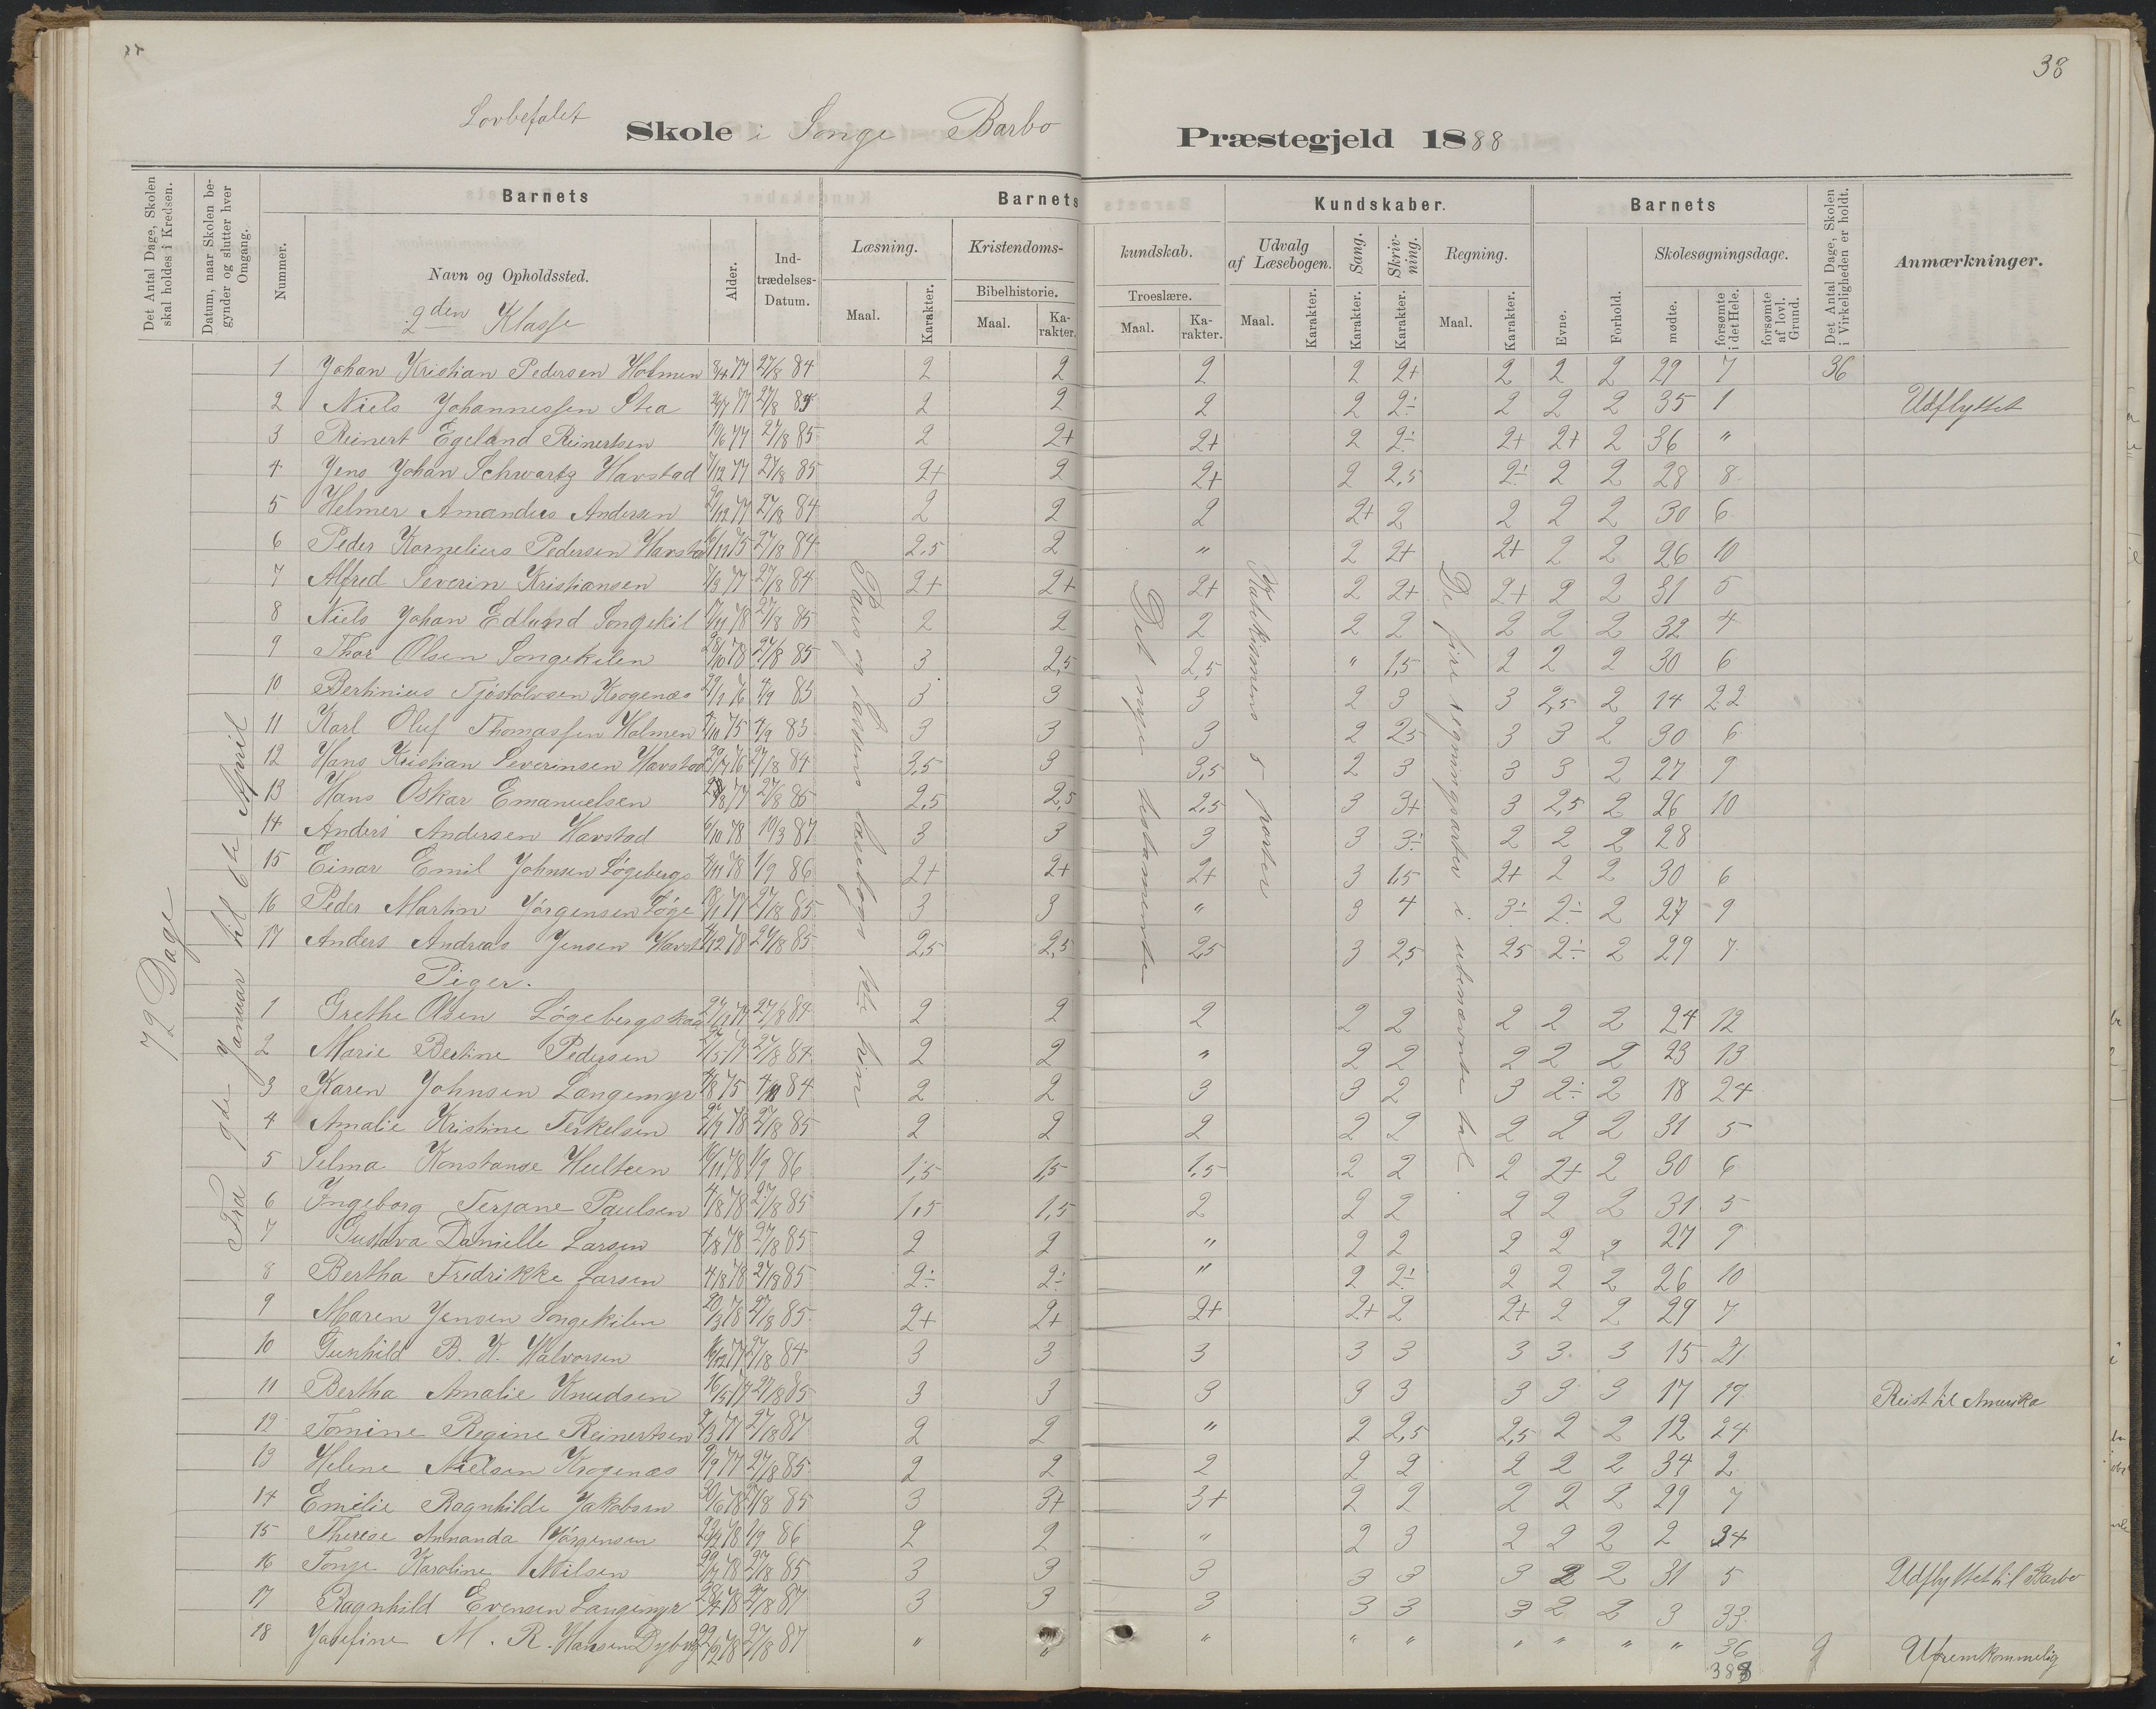 38
Lovbefalet
Skole i Songe Barbo Præstegjeld 1888
Det Antal Dage, Skolen skal holdes i Kredsen.
Datum, naar Skolen begynder og slutter hver Omgang.
Barnets
Barnets Kundskaber.
Barnets
Det Antal Dage, Skolen i Virkeligheden er holdt.
Anmærkninger.
Nummer.
Navn og Opholdssted.
Alder.
Indtrædelses-Datum.
Læsning.
Kristendoms-kundskab.
Udvalg af Læsebogen.
Sang.
Skrivning.
Regning.
Evne.
Forhold.
Skolesøgningsdage.
Bibelhistorie.
Troeslære.
Maal. Karakter. Maal. Karakter. Maal. Karakter. Maal. Karakter. Karakter. Karakter. Maal. Karakter.
mødte.
forsømte i det Hele.
forsømte af lovl. Grund.
2den Klasse
72 Dage
Fra 9de Januar til 6te April
Det nye testamente
Katekismens 5 parter
De fire regningsarter i ubenævnte tal.
1 Johan Kristian Pedersen Holmen 77 27/8 84 2 2 2 2 2+ 2 2 2 29 7 36
2 Niels Johannessen Stea 77 27/8 85 2 2 2 2 2÷ 2 2 2 35 1 Udflyttet
3 Reinert Egeland Reinertsen 77 27/8 85 2 2+ 2+ 2 2÷ 2+ 2+ 2 36 "
4 Jens Johan Schwartz Havstad 7/12 77 27/8 85 2+ 2 2+ 2 2,5 2÷ 2 2 28 8
5 Helmer Amandus Andersen 77 27/8 84 2 2 2 2+ 2 2 2 2 30 6
6 Peder Kornelius Pedersen Havsta 75 27/8 84 2,5 2 " 2 2+ 2+ 2 2 26 10
7 Alfred Severin Kristiansen 77 27/8 84 2+ 2+ 2+ 2 2+ 2+ 2 2 31 5
8 Niels Johan Edlund Songekil 78 27/8 85 2 2 2 2 2 2 2 2 32 4
9 Thor Olsen Songekilen 78 27/8 85 3 2,5 2,5 " 1,5 2 2 2 30 6
10 Bertinius Tjostolvsen Krogenæs 76 4/9 83 3 3 3 2 3 3 2,5 2 14 22
11 Karl Oluf Thomassen Holmen 75 4/9 83 3 3 3 2 25 3 3 2 30 6
12 Hans Kristian Severinsen Havstad 76 27/8 84 3,5 3 3,5 2 3 3 3 2 27 9
13 Hans Oskar Emanuelsen 77 27/8 85 2,5 2,5 2,5 3 3+ 3 2,5 2 26 10
14 Anders Andersen Havstad 78 10/3 87 3 3 3 3 3÷ 2 2 2 28
15 Einar Emil Johnsen Løgebergs 78 1/9 86 2+ 2+ 2+ 3 1,5 2+ 2 2 30 6
16 Peder Martin Jørgensen Løge 77 27/8 85 3 3 " 3 4 3÷ 2÷ 2 27 9
17 Anders Andreas Jensen Havst 78 27/8 85 2,5 2,5 2,5 3 2,5 25 2÷ 2 29 7
Piger.
1 Grethe Olsen Løgebergskaa 77 27/8 84 2 2 2 2 2 2 2 2 24 12
2 Marie Bertine Pedersen 27/8 84 2 2 " 2 2 2 2 2 23 13
3 Karen Johnsen Langemyr 75 84 2 2 3 3 2 3 2÷ 2 18 24
4 Amalie Kristine Terkelsen 78 27/8 85 2 2 2 2 2 2 2 2 31 5
5 Selma Konstanse Hulteen 78 1/9 86 1,5 1,5 1,5 2 2 2 2+ 2 30 6
6 Ingeborg Terjane Paulsen 4/8 78 27/8 85 1,5 1,5 2 2 2 2 2 2 31 5
7 Gustava Danielle Larsen 4/8 78 27/8 85 2 2 " 2 2 2 2 2 27 9
8 Bertha Fredrikke Larsen 4/8 78 27/8 85 2÷ 2÷ " 2 2÷ 2 2 2 26 10
9 Maren Jensen Songekilen 20/3 78 27/8 85 2+ 2+ 2+ 2+ 2 2+ 2 2 29 7
10 Gunhild B. K. Halvorsen 77 27/8 84 3 3 3 3 3 3 3 3 15 21
11 Bertha Amalie Knudsen 16/5 77 27/8 85 3 3 3 3 3 3 3 3 17 19 Reist til Amerika
12 Tomine Regine Reinertsen 77 27/8 87 2 2 " 2 2,5 2,5 2 2 12 24
13 Helene Nielsen Krogenæs 77 27/8 85 2 2 2 2 2 2 2 2 34 2
14 Emilie Ragnhilde Jakobsen 78 27/8 85 3 3+ 3+ 2 2 2 2 2 29 7
15 Therese Amanda Jørgensen 78 1/9 86 2 2 " 2 3 2 2 2 2 34
16 Tonje Karoline Nilsen 78 27/8 85 3 3 3 3 3 3 2 2 31 5 Udflyttet til Barbo
17 Ragnhild Evensen Langemyr 78 27/8 87 3 3 3 3 3 3 2 2 3 33
18 Josefine M. R. Hansen Dyb 78 27/8 87 " " " " " " " " " 36 Ufremkommelig
388